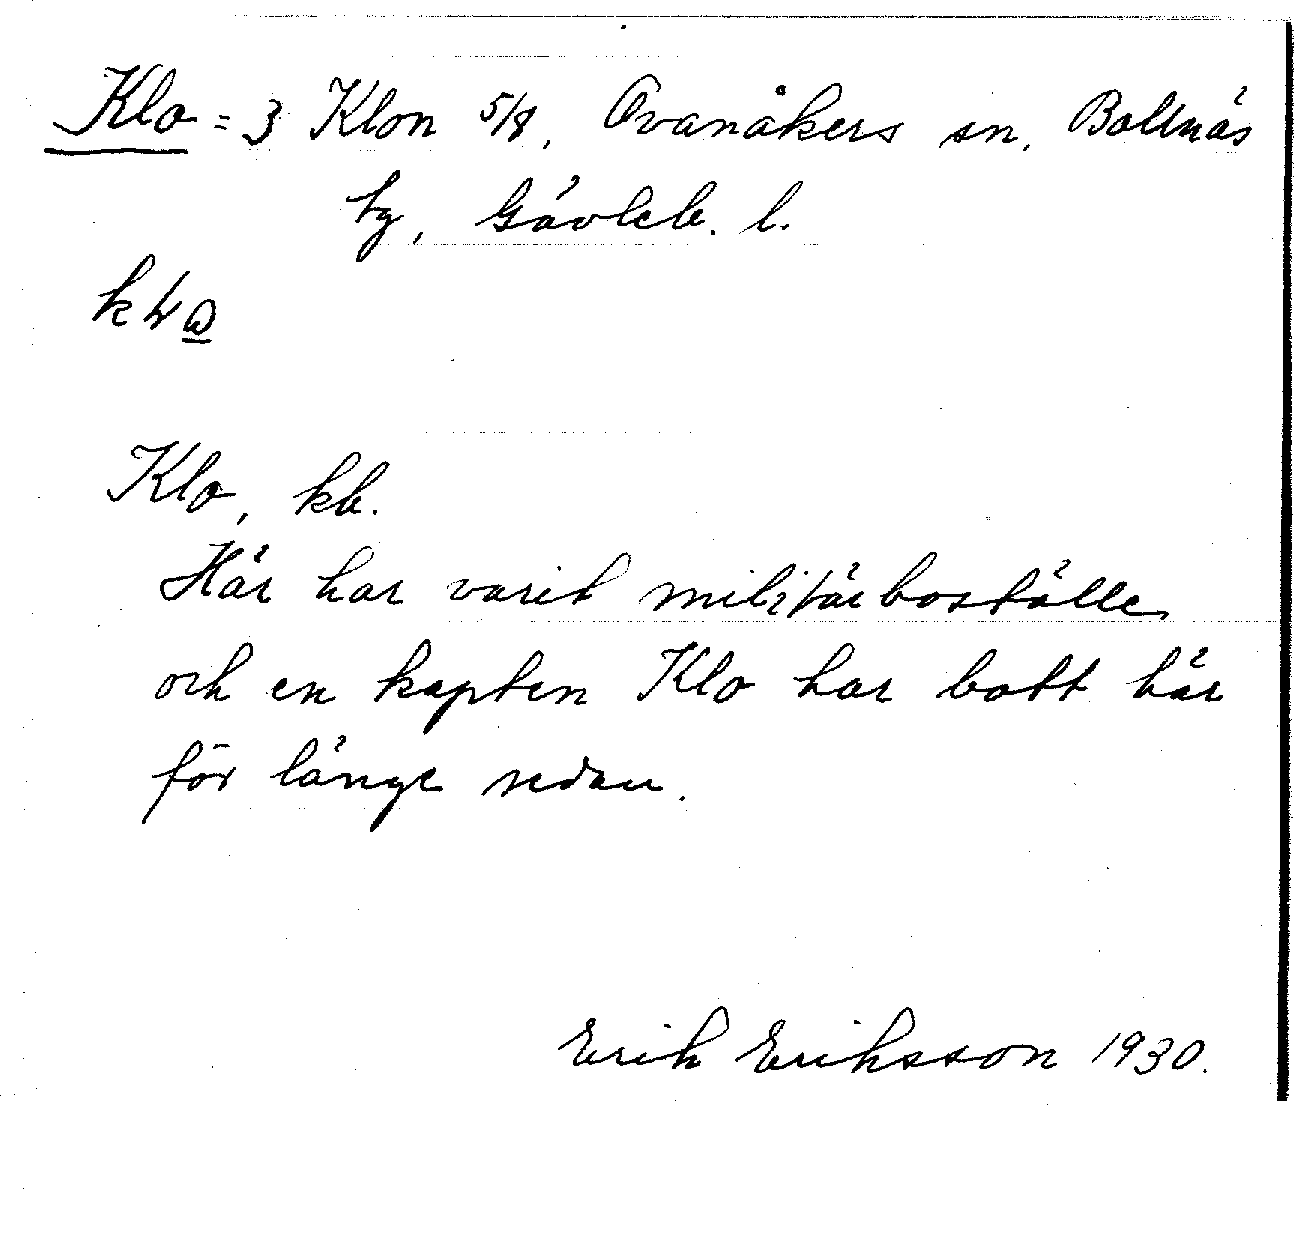 Klo = 3 Klon 5/8, Ovanåkers sn, Bollnäs
tg, Gävleb. l.
Klo, kb.
Här har varit militärboställe
och en kapten Klo har bott här
för länge sedan.
Erik Eriksson 1930.